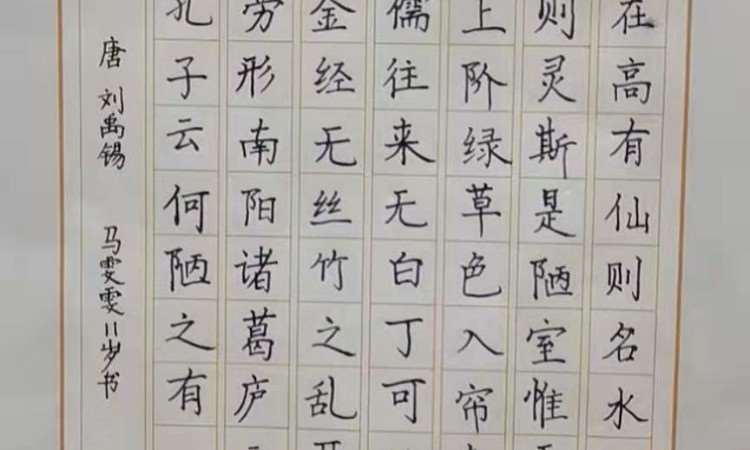 在高有仙则名水
则灵斯是陋室惟
上阶绿草色入帘
儒往来无白丁可
金经无丝竹之乱
劳形南阳诸葛庐
孔子云何陋之有
唐 刘禹锡 马雯雯11岁书